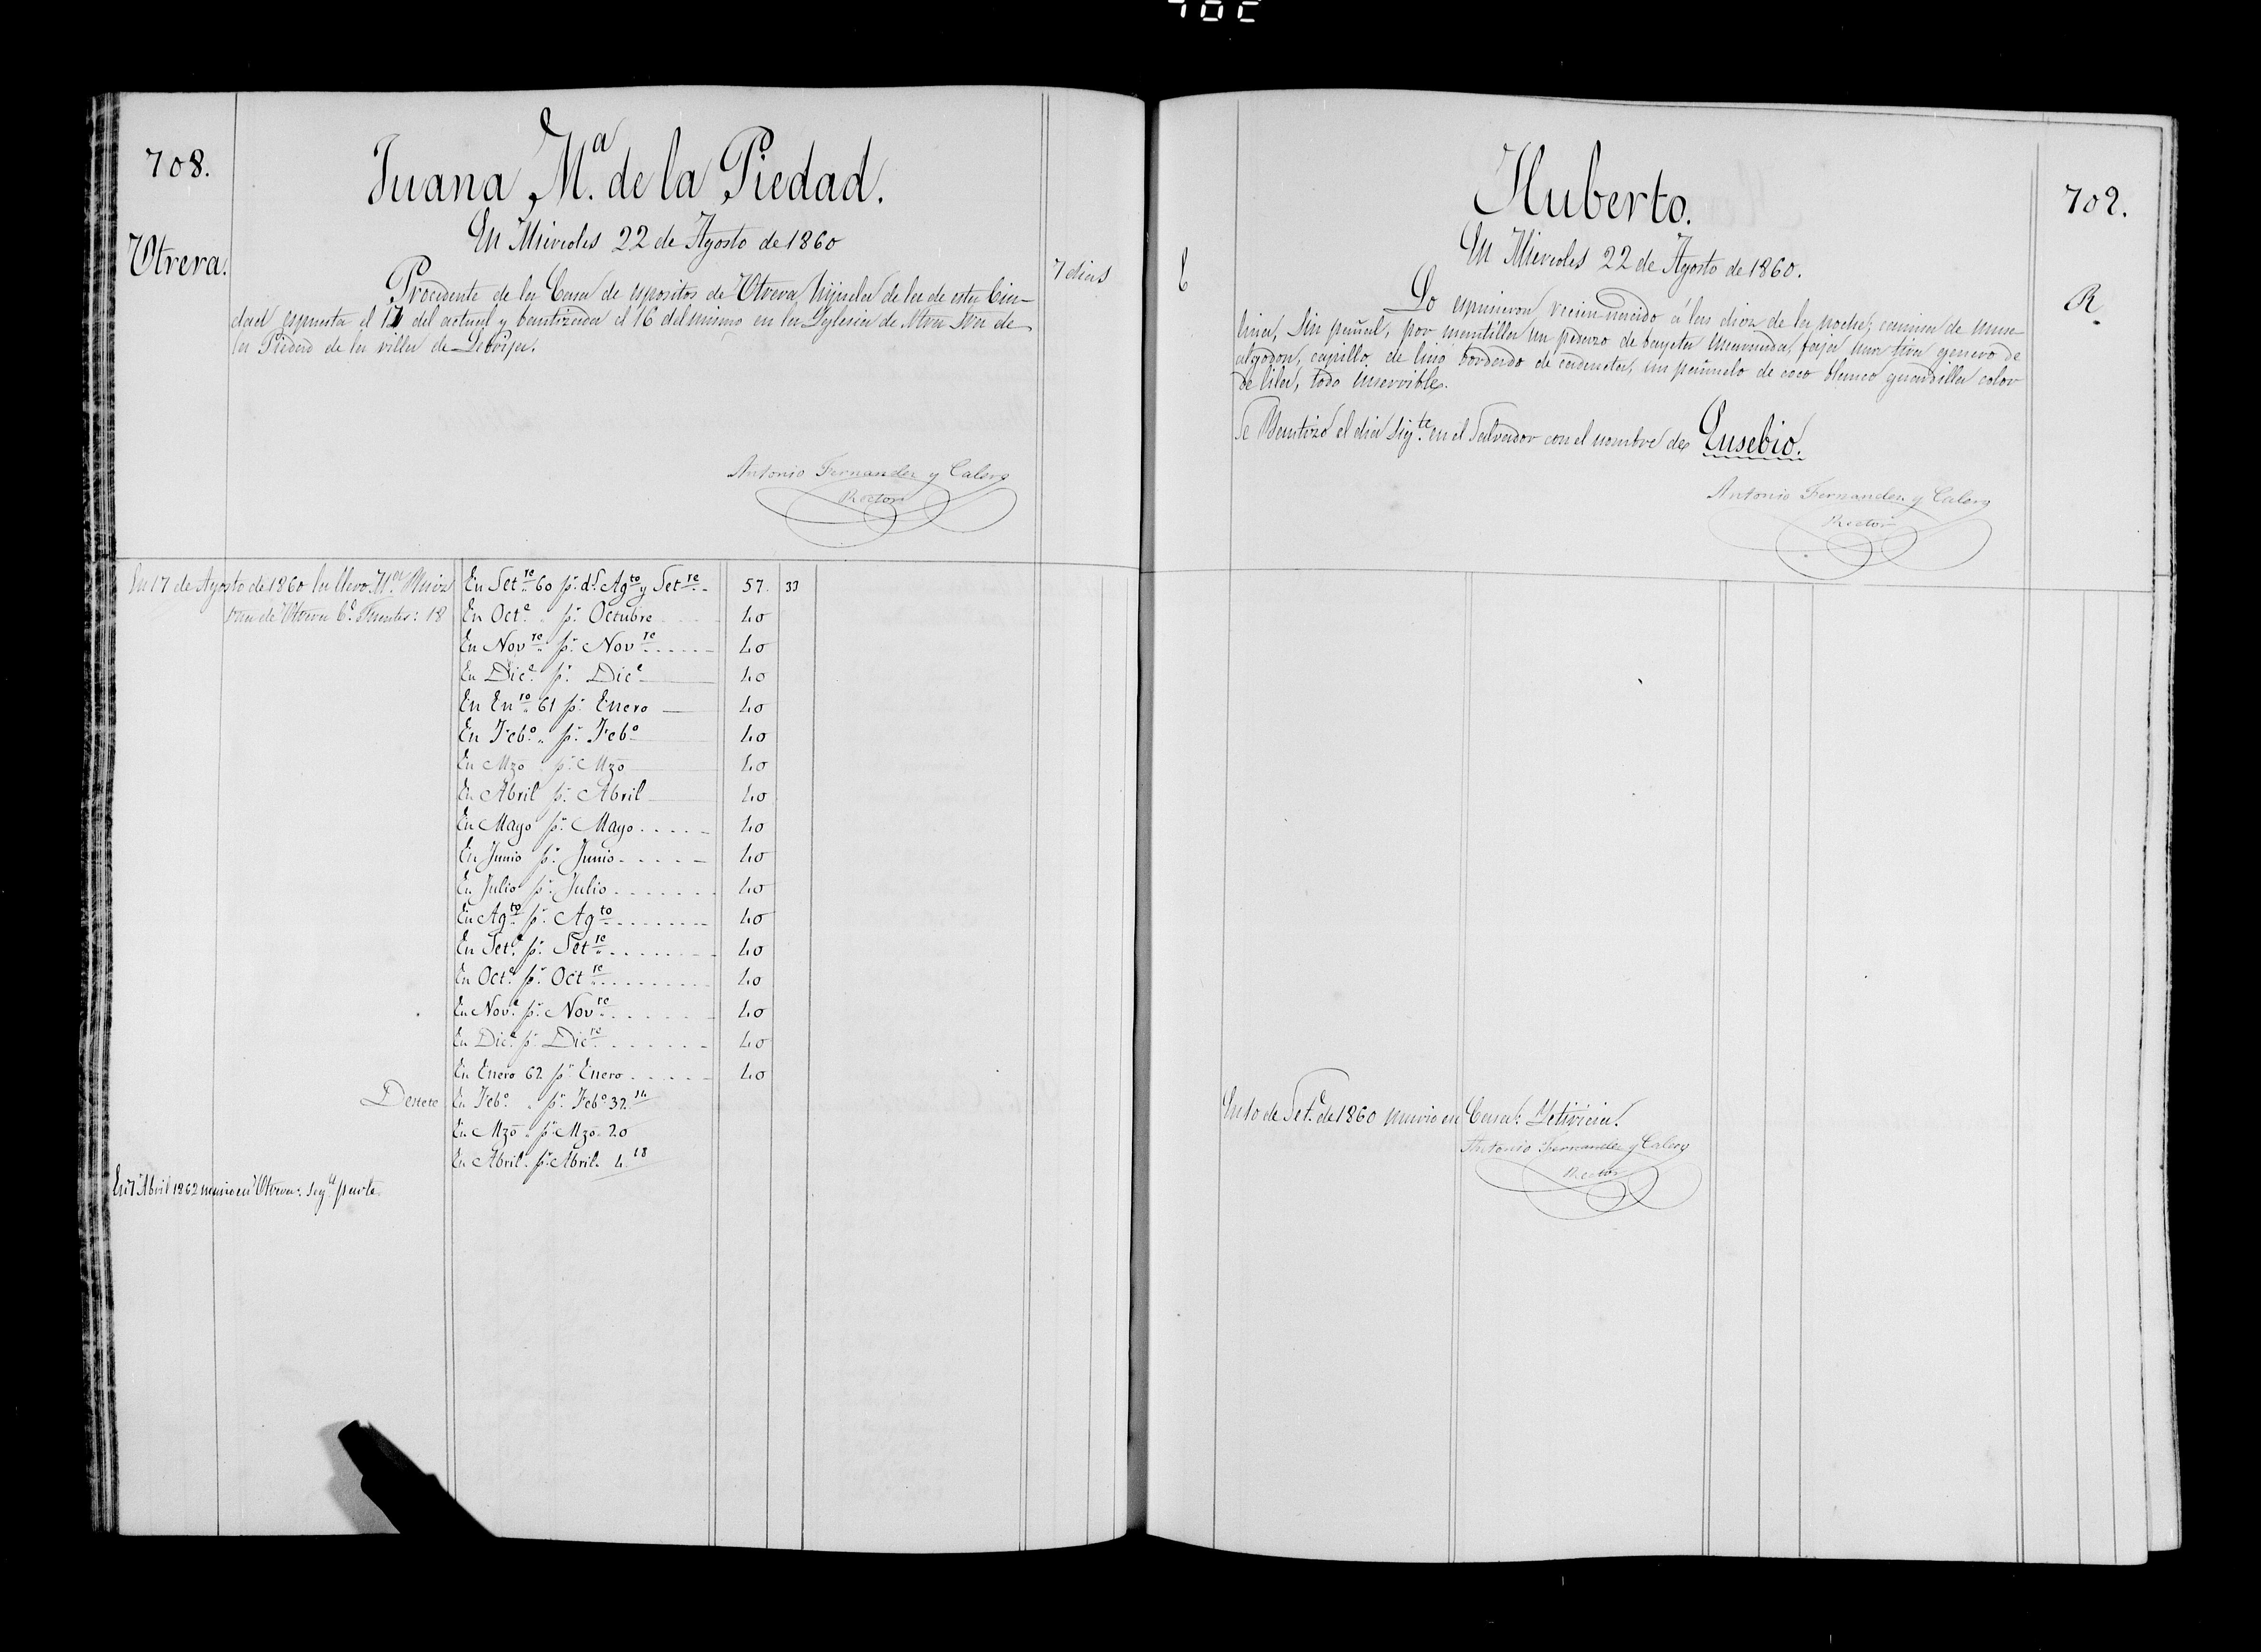 708.
Utrera.
Juana M.ª de la Piedad.
En Miercoles 22 de Agosto de 1860
7 dias
Procedente de la Casa de espositos de Utrera hijuela de la de esta Ciu-
dad espuesta el 15 del actual y bautizada el 16 del mismo en la Yglesia de Ntra Sra de
la Piedad de la villa de Lebrija.
Antonio Fernandez y Calero
Rector
En 17 de Agosto de 1860 la llevo M.ª
de Utrera C.e Fuentes: 18
En Set.re 60 p.r d.s Ag.to y Set.re 57. 33
En Oct.e p.r Octubre 40
En Nov.re p.r Nov.re 40
En Dic.e p.r Dic.e 40
En En.ro 61 p.r Enero 40
En Feb.o " p.r Feb.o 40
En Mzo p.r Mzo 40
En Abril p.r Abril 40
En Mayo p.r Mayo 40
En Junio p.r Junio 40
En Julio p.r Julio 40
En Ag.to p.r Ag.to 40
En Set.e p.r Set.re 40
En Oct.e p.r Oct.re 40
En Nov.e p.r Nov.re 40
En Dic.e p.r Dic.re 40
En Enero 62 p.r Enero 40
Destete En Feb.o " p.r Feb.o 32.14
En Mzo " p.r Mzo 20
En Abril p.r Abril 4.18
En 7 Abril 1862 murio en Utrera: seg.n parte.
702.
R.
Huberto.
En Miercoles 22 de Agosto de 1860.
Lo espusieron recien-nacido á las diez de la noche; camisa de muse-
lina, sin pañal, por mantilla un pedazo de bayeta encarnada, faja una tira genero de
algodon, capillo de lino bordado de cadeneta, un pañuelo de coco blanco guardilla color
de lila, todo inservible.
Se Bautizó el dia sig.te en el Salvador con el nombre de Eusebio.
Antonio Fernandez y Calero
Rector
En 10 de Set.e de 1860 murio en Casa:
Antonio Fernandez y Calero
Rector